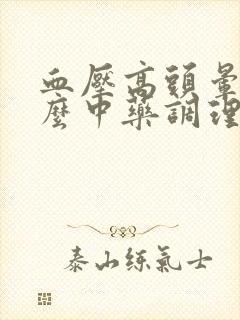 血壓高頭暈
麼中藥調理
泰山練氣士